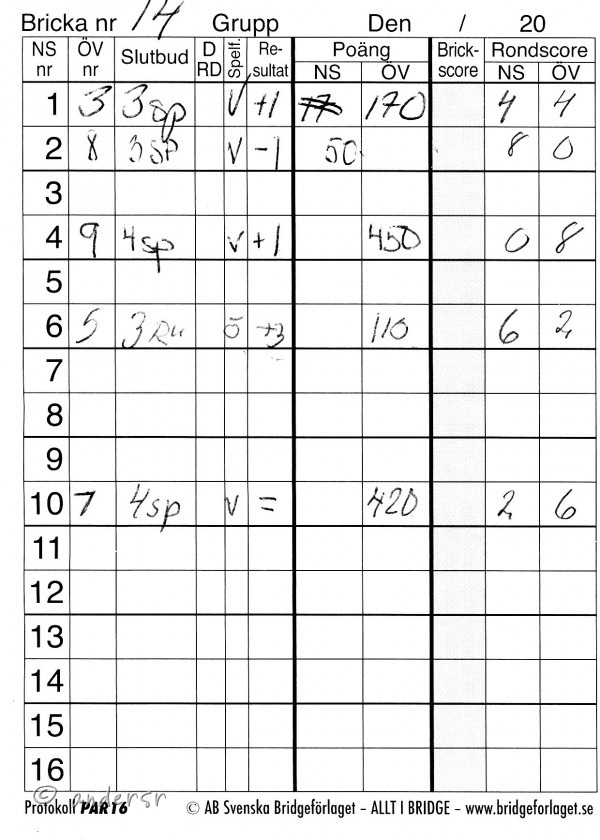 Bricka nr 14 Grupp Den / 20
NS nr ÖV nr Slutbud D RD Spelf. Re-sultat Poäng NS ÖV Brick-score Rondscore NS ÖV
1 3 3sp V +1 170 4 4
2 8 3sp V -1 50 8 0
3
4 9 4sp V +1 450 0 8
5
6 5 3Ru Ö 110 6 2
7
8
9
10 7 4sp V = 420 2 6
11
12
13
14
15
16
© andersr
Protokoll PART6 © AB Svenska Bridgeförlaget – ALLT I BRIDGE – www.bridgeforlaget.se